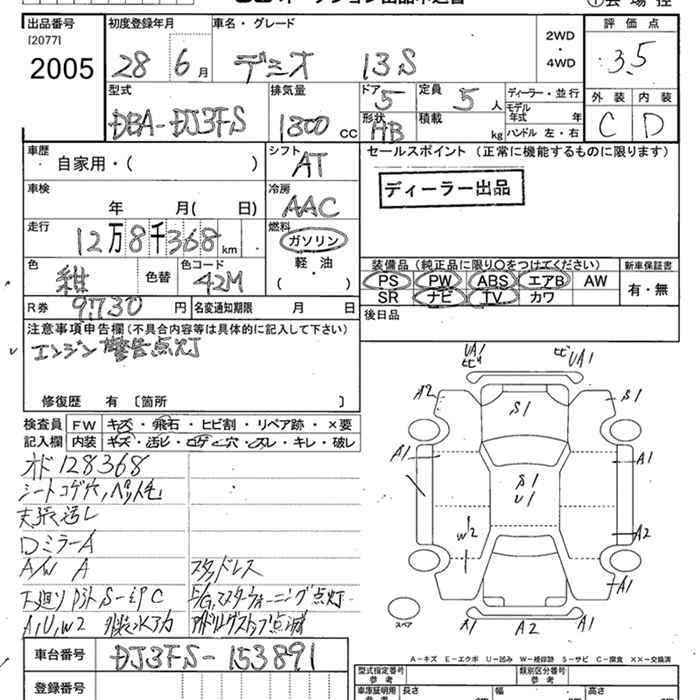 出品番号 初度登録年月 車名・グレード 2WD・4WD 評価点
[2077]
2005 28 6月 デミオ 13S 3.5
型式 排気量 ドア 5 定員 5人 ディーラー・並行 外装 内装
DBA-DJ3FS 1300CC 形状 HB 積載 kg モデル年式 年 ハンドル 左・右 C D
車歴 自家用・( ) シフト AT セールスポイント (正常に機能するものに限ります)
車検 年 月( 日) 冷房 AAC ディーラー出品
走行 12万8千368km 燃料 ガソリン 軽・油 ( )
装備品 (純正品に限り○をつけてください) 新車保証書
色 紺 色替 色コード 42M PS PW ABS エアB AW 有・無
SR ナビ TV カワ
R券 9,730円 名変通知期限 月 日 後日品
注意事項申告欄(不具合内容等は具体的に記入して下さい)
エンジン警告点灯
修復歴 有 〔箇所 〕
検査員 FW キズ・飛石・ヒビ割・リペア跡・×要
記入欄 内装 キズ・活ビ・コゲ・穴・スレ・キレ・破レ
オド128368
シートコゲ穴,ペット毛
天張汚レ
DミラーA
A/W A スタッドレス
下廻りサビS-ミPC E/G,マスターウォーニング点灯
A,U,W2 アイドリングストップ点滅
車台番号 DJ3FS-153891
登録番号
UA1 ヒビ ヒビ UA1
A2 S1 S1
A1 S1 U1 A1
W2 A2
A1
スペア A1 A2 A1
A-キズ E-エクボ U-凹み W-補修跡 S-サビ C-腐食 ××-交換済
型式指定番号 参考 類別区分番号 参考
車庫証明用 参考 長さ cm 幅 cm 高さ cm